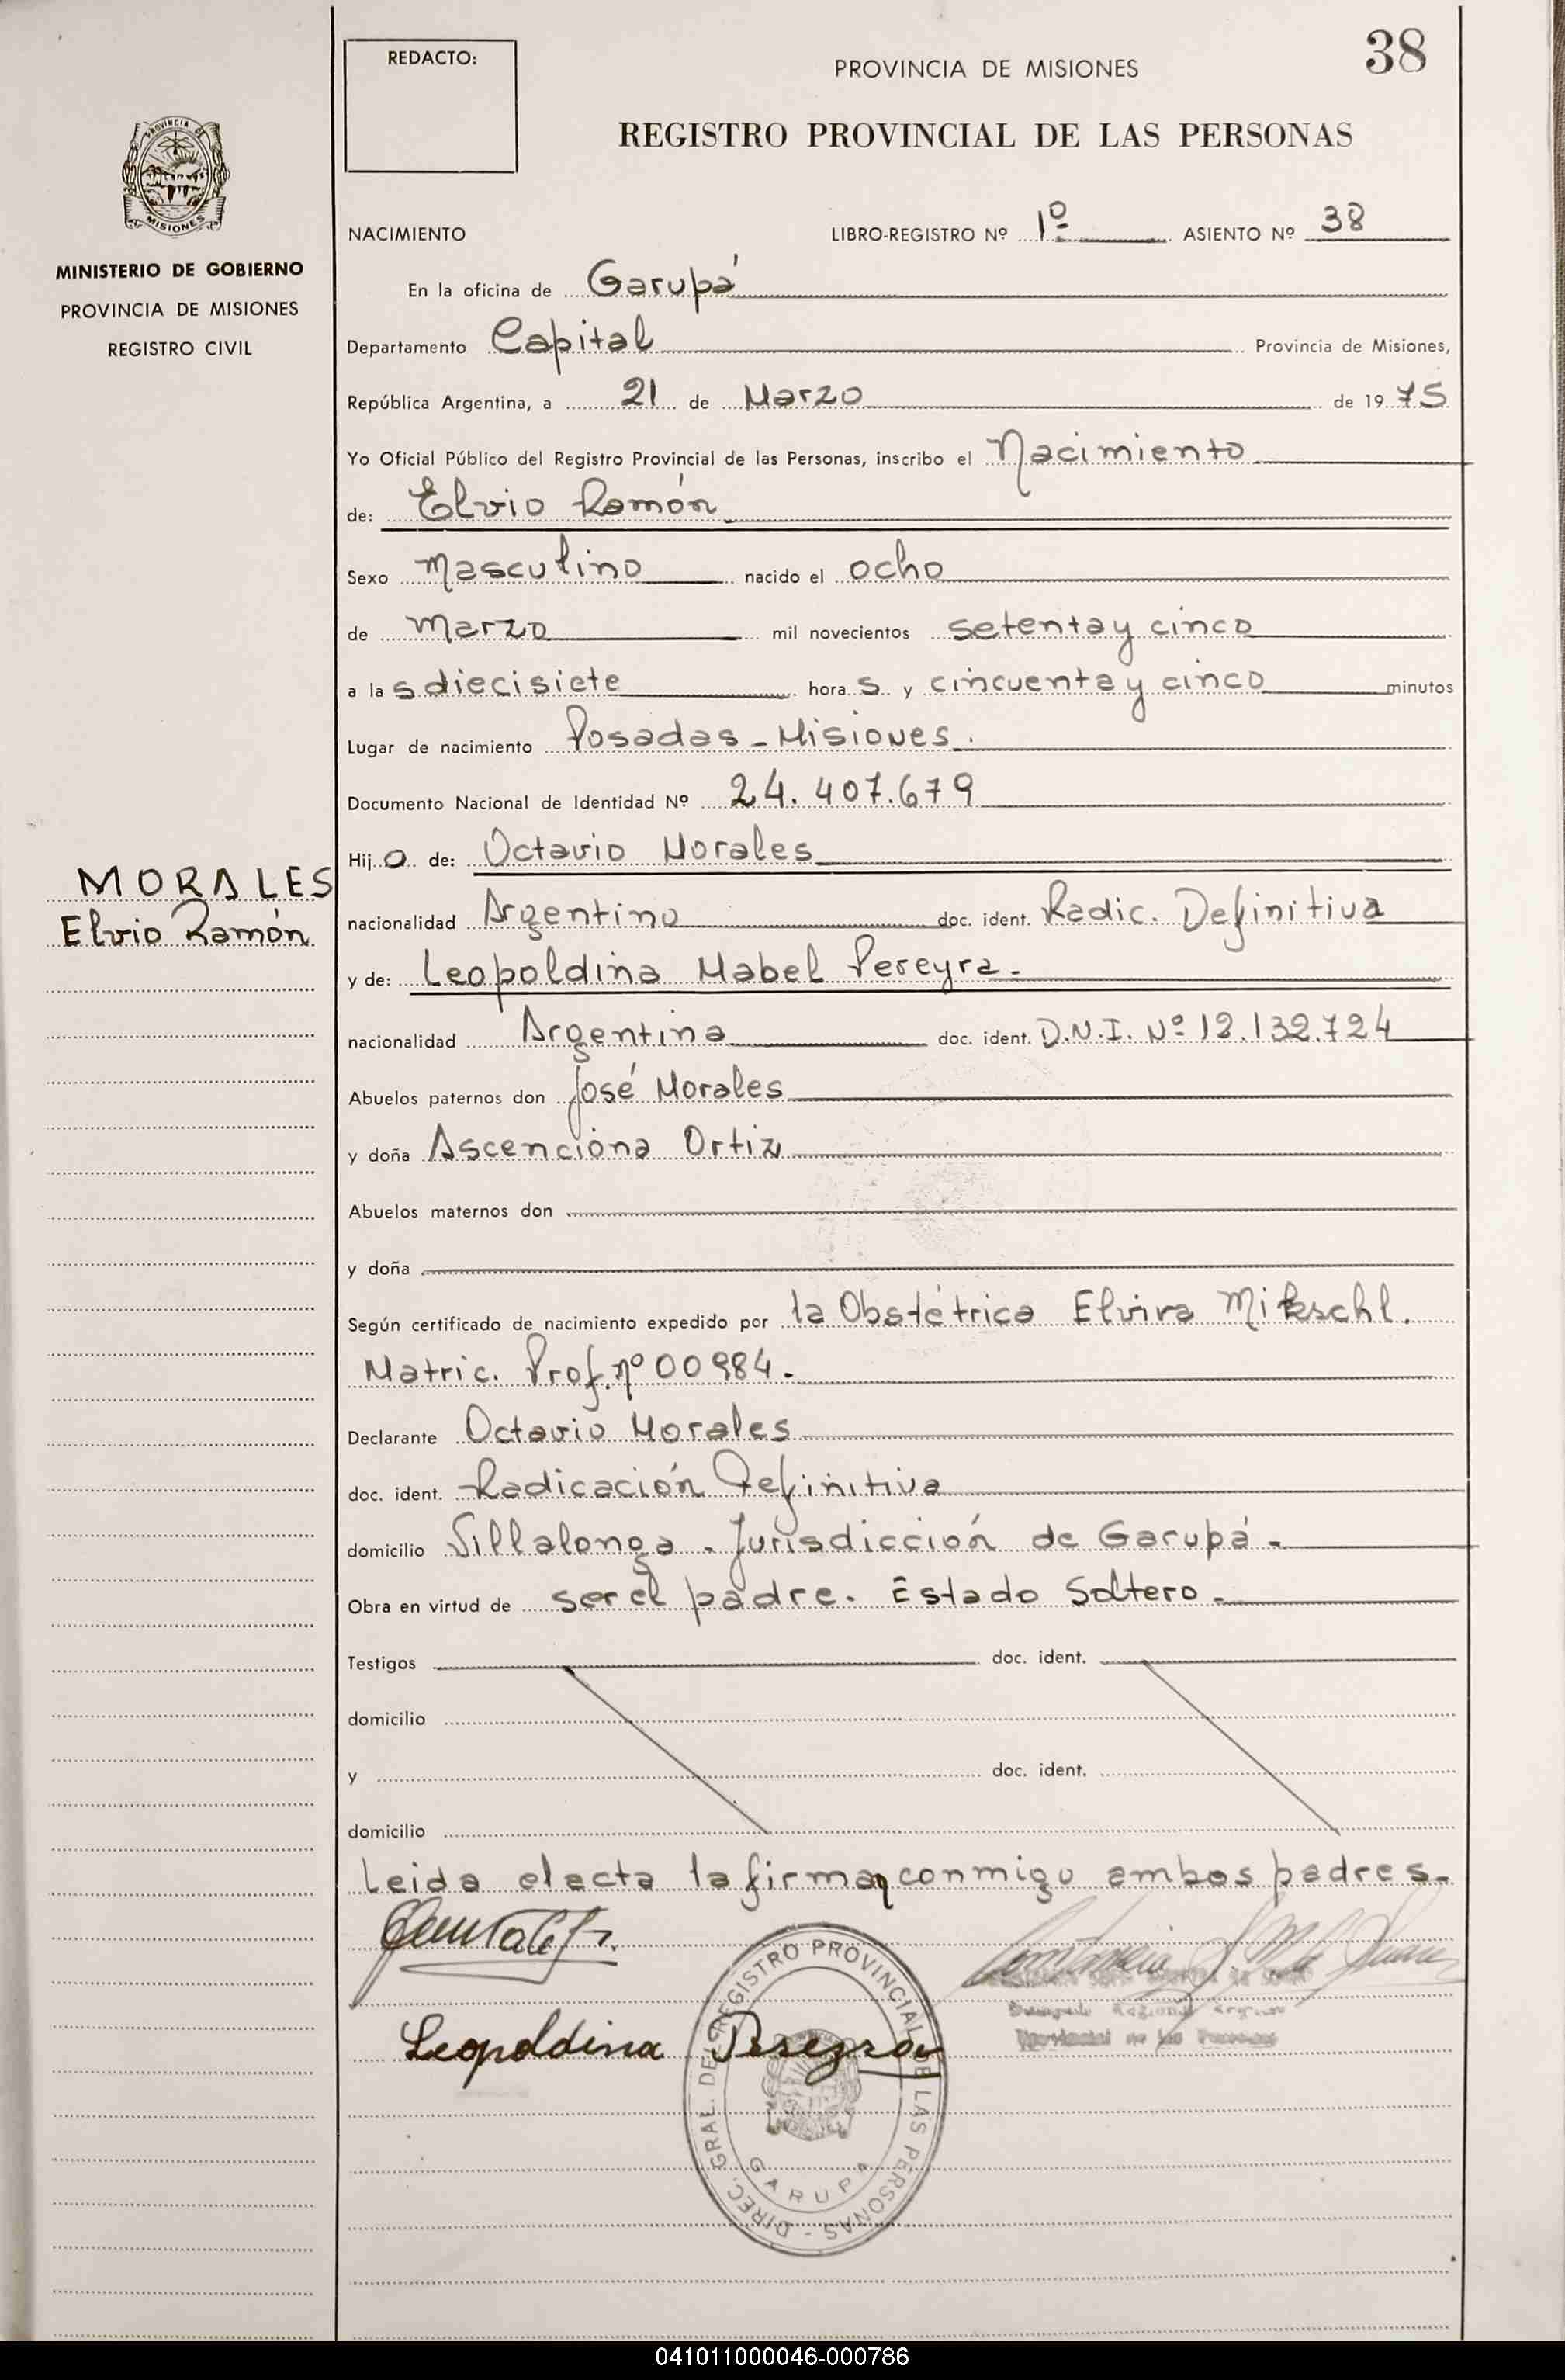 38
REDACTO:
PROVINCIA DE MISIONES
REGISTRO PROVINCIAL DE LAS PERSONAS
PROVINCIA DE
MISIONES
MINISTERIO DE GOBIERNO
PROVINCIA DE MISIONES
REGISTRO CIVIL
NACIMIENTO LIBRO-REGISTRO Nº 1º ASIENTO Nº 38
En la oficina de Garupá
Departamento Capital Provincia de Misiones,
República Argentina, a 21 de Marzo de 1975
Yo Oficial Público del Registro Provincial de las Personas, inscribo el Nacimiento
de: Elvio Ramón
Sexo Masculino nacido el ocho
de Marzo mil novecientos setenta y cinco
a las diecisiete horas y cincuenta y cinco minutos
Lugar de nacimiento Posadas - Misiones.
Documento Nacional de Identidad Nº 24.407.679
Hijo de: Octavio Morales
MORALES
Elvio Ramón
nacionalidad Argentino doc. ident. Radic. Definitiva
y de: Leopoldina Mabel Pereyra.
nacionalidad Argentina doc. ident. D.N.I. Nº 12.132.724
Abuelos paternos don José Morales
y doña Ascenciona Ortiz
Abuelos maternos don
y doña
Según certificado de nacimiento expedido por la Obstétrica Elvira Mikschl.
Matric. Prof. nº 00984.
Declarante Octavio Morales
doc. ident. Radicación Definitiva
domicilio Villalonga - Jurisdicción de Garupá -
Obra en virtud de ser el padre. Estado Soltero -
Testigos doc. ident.
domicilio
y doc. ident.
domicilio
Leida el acta la firman conmigo ambos padres -
Leopoldina Pereyra
DIREC. GRAL. DEL REGISTRO PROVINCIAL DE LAS PERSONAS -
GARUPA
041011000046-000786